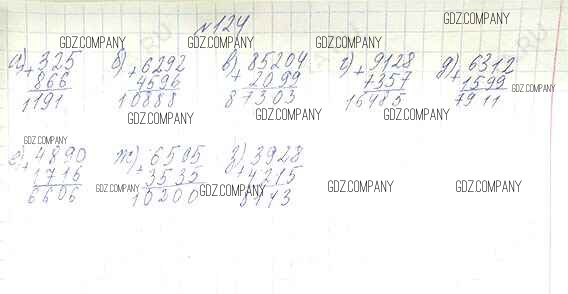 №124
а) 325 б) 6292 в) 85204 г) 9128 д) 6312
+ 866 + 4596 + 2099 + 7357 + 1599
1191 10888 87303 16485 7911
е) 4890 ж) з) 3928
+ 1716 + 3535 + 4215
6606 10200 8143
GDZ.COMPANY
GDZ.COMPANY
GDZ.COMPANY
GDZ.COMPANY
GDZ.COMPANY
GDZ.COMPANY
GDZ.COMPANY
GDZ.COMPANY
GDZ.COMPANY
GDZ.COMPANY
GDZ.COMPANY
GDZ.COMPANY
GDZ.COMPANY